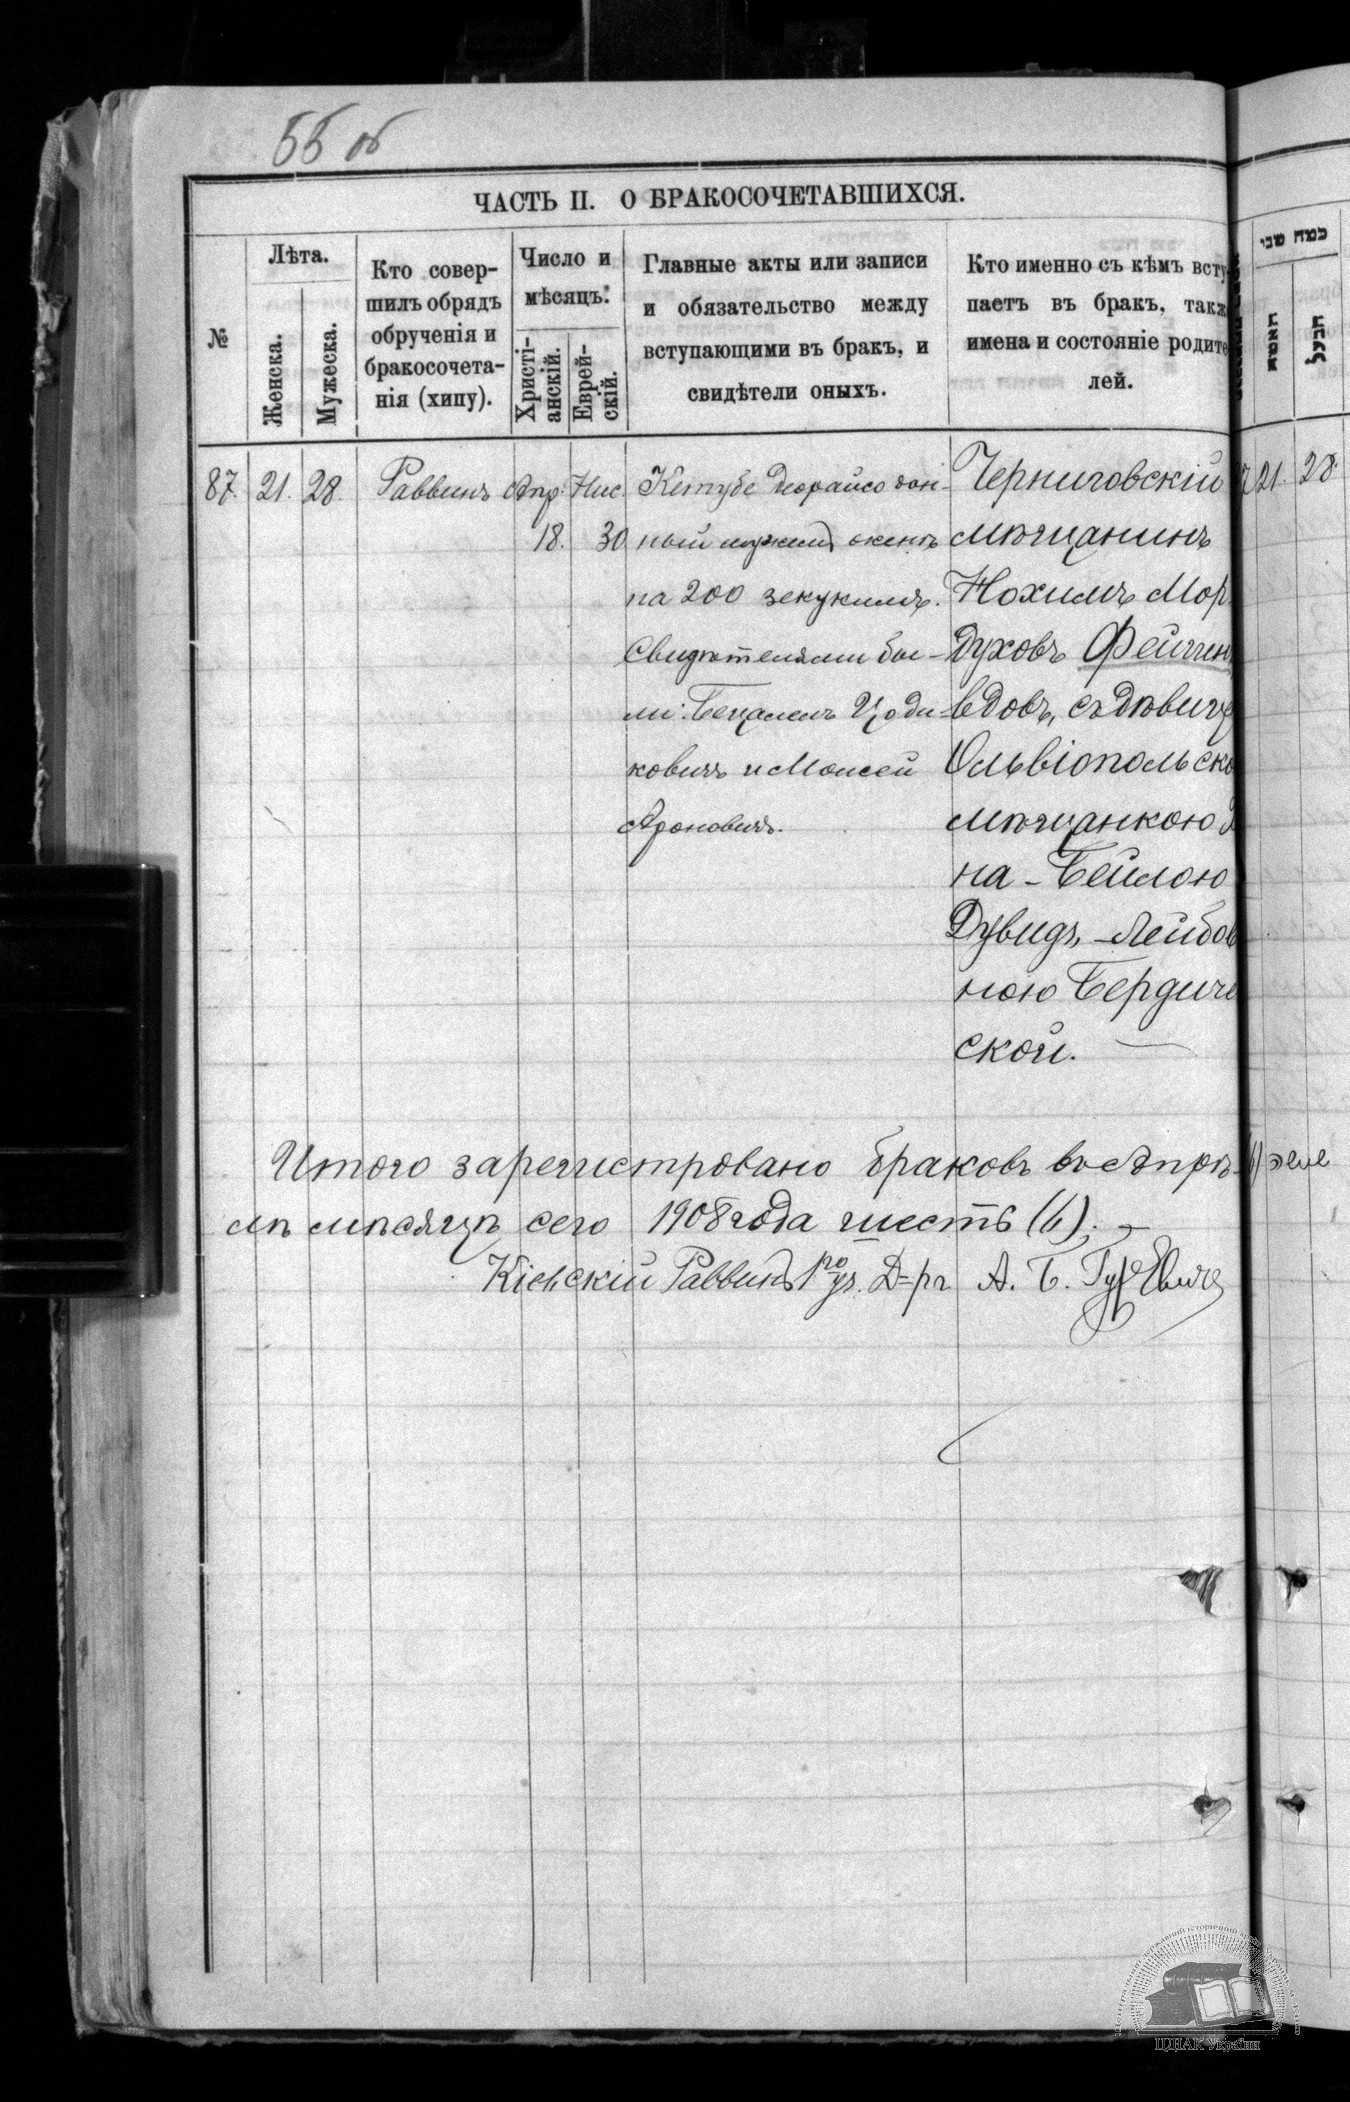 55 об
ЧАСТЬ II. О БРАКОСОЧЕТАВШИХСЯ.
№
Лѣта.
Женска.
Мужеска.
Кто совер-
шилъ обрядъ
обрученія и
бракосочета-
нія (хипу).
Число и
мѣсяцъ.
Христі-
анскій.
Еврей-
скій.
Главные акты или записи
и обязательство между
вступающими въ бракъ, и
свидѣтели оныхъ.
Кто именно съ кѣмъ всту
паетъ въ бракъ, такж
имена и состояніе родите
лей.
כמה שני
האשה
הבעל
87. 21. 28. Раввинъ Апр. Нис.
18. 30
Кетубе деорайсо дан-
ный мужемъ женѣ
на 200 зекукимъ.
Свидѣтелями бы-
ли: Бецалель Цоди-
ковичъ и Моисей
Ароновичъ.
Черниговскій
мѣщанинъ
Нохимъ Мор
духовъ Фейгин
вдовъ, съ дѣвице
Ольвіопольско
мѣщанкою
на-Бейлою
Дувидъ-Лейбов
ною Бердиче
ской.
21. 28.
Итого зарегистровано браковъ въ Апрѣ-
лѣ мѣсяцѣ сего 1908 года шесть (6).
Кіевскій Раввинъ Д-ръ А. Б. Гуревичъ
ЦДІАК України